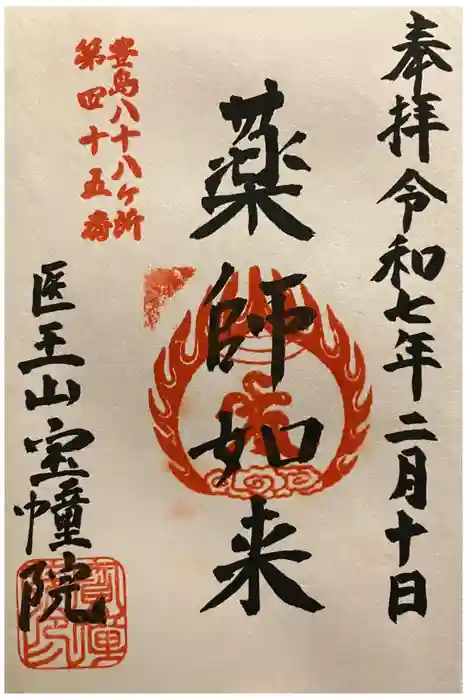 奉拝令和七年二月十日
薬師如来
豊島八十八ケ所
第四十五番
医王山宝幢院
寶幢院印